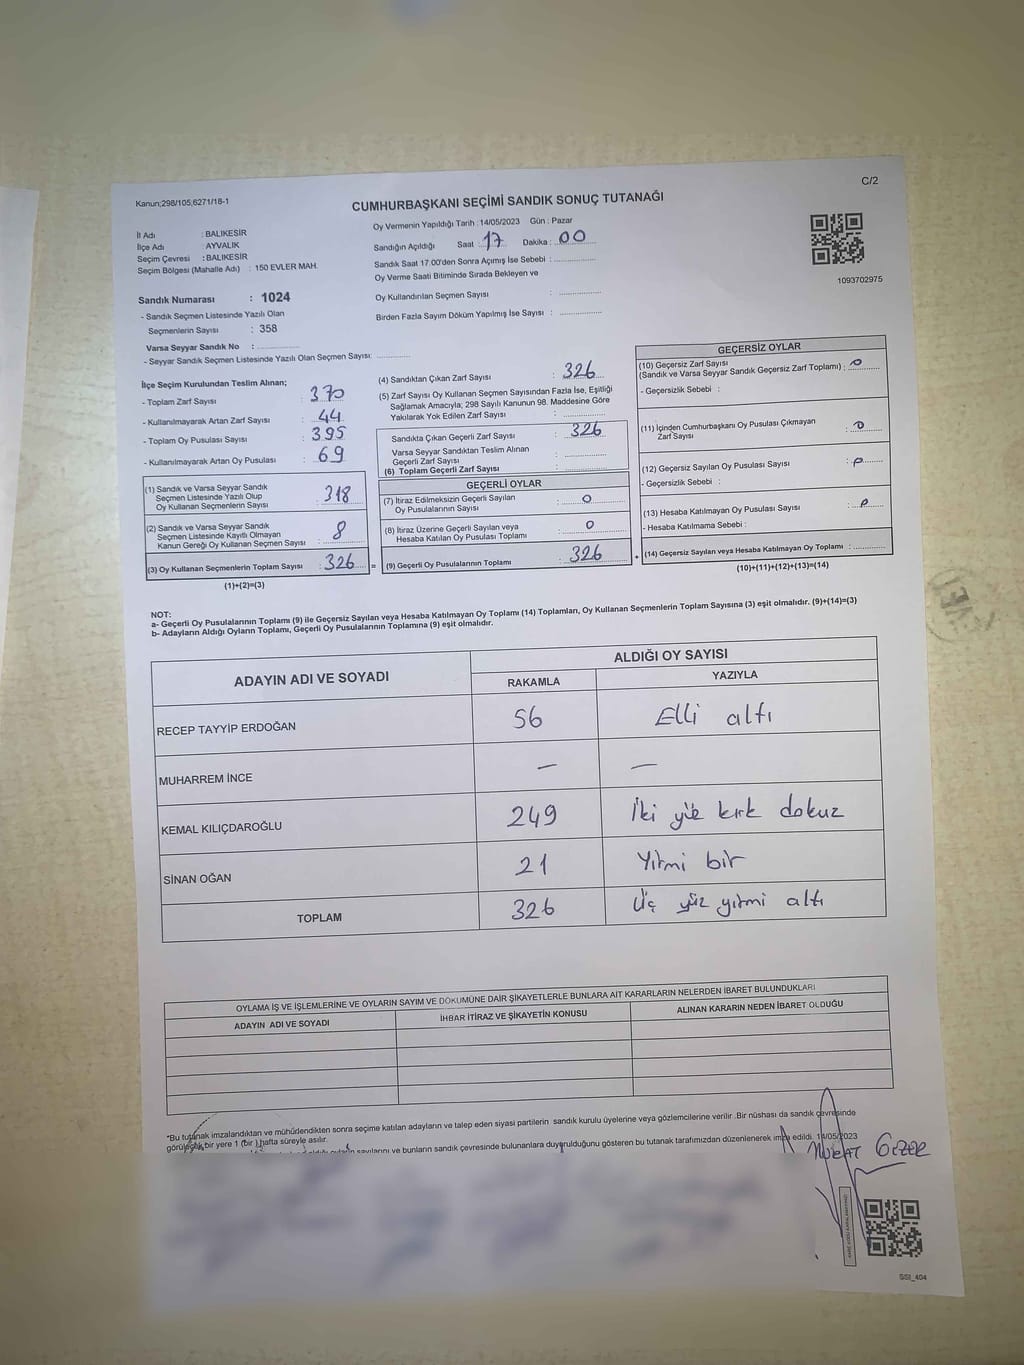 C/2
Kanun;298/105,6271/18-1
CUMHURBAŞKANI SEÇİMİ SANDIK SONUÇ TUTANAĞI
İl Adı : BALIKESİR
İlçe Adı : AYVALIK
Seçim Çevresi : BALIKESİR
Seçim Bölgesi (Mahalle Adı) : 150 EVLER MAH.
Oy Vermenin Yapıldığı Tarih : 14/05/2023 Gün : Pazar
Sandığın Açıldığı Saat : 17 Dakika : 00
Sandık Saat 17.00'den Sonra Açımış İse Sebebi :
Oy Verme Saati Bitiminde Sırada Bekleyen ve
Oy Kullandırılan Seçmen Sayısı :
Birden Fazla Sayım Döküm Yapılmış İse Sayısı :
1093702975
Sandık Numarası : 1024
- Sandık Seçmen Listesinde Yazılı Olan
Seçmenlerin Sayısı : 358
Varsa Seyyar Sandık No :
- Seyyar Sandık Seçmen Listesinde Yazılı Olan Seçmen Sayısı:
İlçe Seçim Kurulundan Teslim Alınan;
- Toplam Zarf Sayısı : 370
- Kullanılmayarak Artan Zarf Sayısı : 44
- Toplam Oy Pusulası Sayısı : 395
- Kullanılmayarak Artan Oy Pusulası : 69
(1) Sandık ve Varsa Seyyar Sandık
Seçmen Listesinde Yazılı Olup
Oy Kullanan Seçmenlerin Sayısı : 318
(2) Sandık ve Varsa Seyyar Sandık
Seçmen Listesinde Kayıtlı Olmayan
Kanun Gereği Oy Kullanan Seçmen Sayısı : 8
(3) Oy Kullanan Seçmenlerin Toplam Sayısı : 326 =
(1)+(2)=(3)
(4) Sandıktan Çıkan Zarf Sayısı : 326
(5) Zarf Sayısı Oy Kullanan Seçmen Sayısından Fazla İse, Eşitliği
Sağlamak Amacıyla; 298 Sayılı Kanunun 98. Maddesine Göre
Yakılarak Yok Edilen Zarf Sayısı :
Sandıkta Çıkan Geçerli Zarf Sayısı : 326
Varsa Seyyar Sandıktan Teslim Alınan
Geçerli Zarf Sayısı :
(6) Toplam Geçerli Zarf Sayısı :
GEÇERLİ OYLAR
(7) İtiraz Edilmeksizin Geçerli Sayılan
Oy Pusulalarının Sayısı : 0
(8) İtiraz Üzerine Geçerli Sayılan veya
Hesaba Katılan Oy Pusulası Toplamı : 0
(9) Geçerli Oy Pusulalarının Toplamı : 326 +
GEÇERSİZ OYLAR
(10) Geçersiz Zarf Sayısı
(Sandık ve Varsa Seyyar Sandık Geçersiz Zarf Toplamı) : 0
- Geçersizlik Sebebi :
(11) İçinden Cumhurbaşkanı Oy Pusulası Çıkmayan
Zarf Sayısı : 0
(12) Geçersiz Sayılan Oy Pusulası Sayısı : 0
- Geçersizlik Sebebi :
(13) Hesaba Katılmayan Oy Pusulası Sayısı : 0
- Hesaba Katılmama Sebebi :
(14) Geçersiz Sayılan veya Hesaba Katılmayan Oy Toplamı :
(10)+(11)+(12)+(13)=(14)
NOT:
a- Geçerli Oy Pusulalarının Toplamı (9) ile Geçersiz Sayılan veya Hesaba Katılmayan Oy Toplamı (14) Toplamları, Oy Kullanan Seçmenlerin Toplam Sayısına (3) eşit olmalıdır. (9)+(14)=(3)
b- Adayların Aldığı Oyların Toplamı, Geçerli Oy Pusulalarının Toplamına (9) eşit olmalıdır.
ADAYIN ADI VE SOYADI
ALDIĞI OY SAYISI
RAKAMLA YAZIYLA
RECEP TAYYİP ERDOĞAN 56 Elli altı
MUHARREM İNCE — —
KEMAL KILIÇDAROĞLU 249 İki yüz kırk dokuz
SİNAN OĞAN 21 Yirmi bir
TOPLAM 326 Üç yüz yirmi altı
OYLAMA İŞ VE İŞLEMLERİNE VE OYLARIN SAYIM VE DÖKÜMÜNE DAİR ŞİKAYETLERLE BUNLARA AİT KARARLARIN NELERDEN İBARET BULUNDUKLARI
ADAYIN ADI VE SOYADI İHBAR İTİRAZ VE ŞİKAYETİN KONUSU ALINAN KARARIN NEDEN İBARET OLDUĞU
*Bu tutanak imzalandıktan ve mühürlendikten sonra seçime katılan adayların ve talep eden siyasi partilerin sandık kurulu üyelerine veya gözlemcilerine verilir .Bir nüshası da sandık çevresinde
görülecek bir yere 1 (bir ) hafta süreyle asılır.
sayılarını ve bunların sandık çevresinde bulunanlara duyurulduğunu gösteren bu tutanak tarafımızdan düzenlenerek imza edildi. 14/05/2023
SSI_404